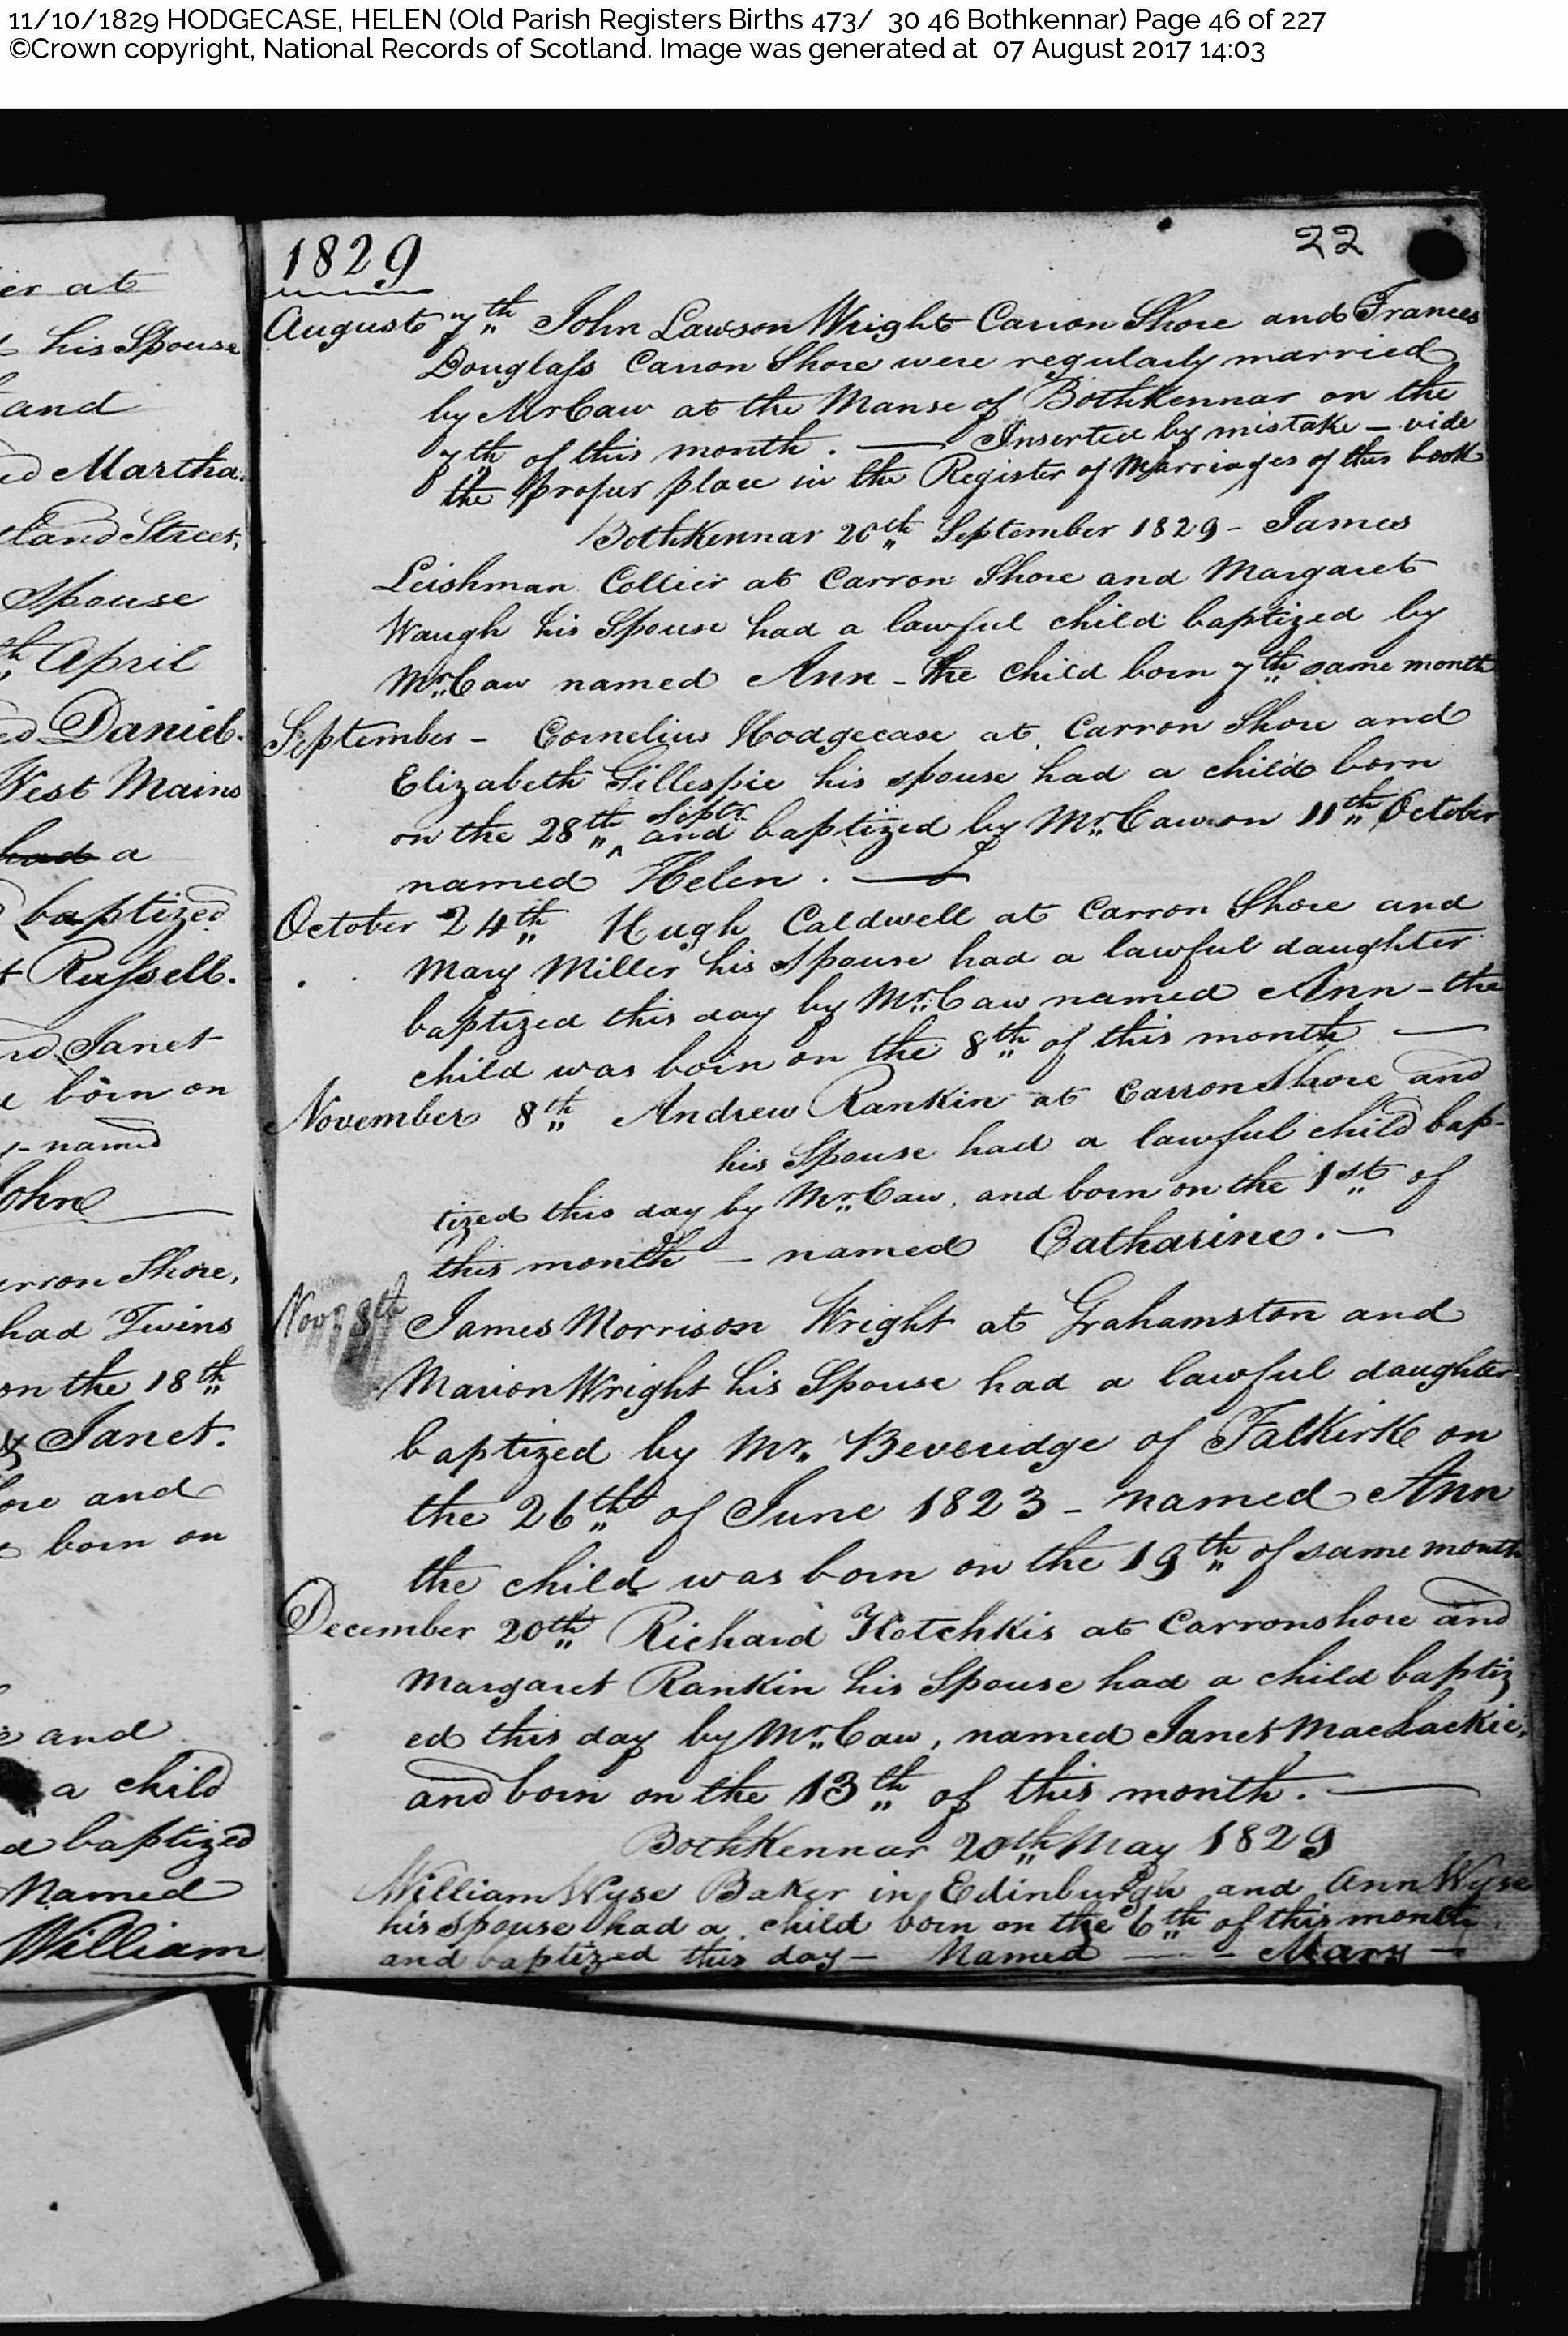 11/10/1829 HODGECASE, HELEN (Old Parish Registers Births 473/ 30 46 Bothkennar) Page 46 of 227
©Crown copyright, National Records of Scotland. Image was generated at 07 August 2017 14:03
er at
his Spouse
and
ed Martha.
tland Street,
Spouse
th April
ed Daniel.
West Mains
had a
baptized
t Russell.
and Janet
e born on
y - named
John
arron Shore,
had Twins
on the 18th
& Janet.
ore and
born on
e and
a child
d baptized
Named
William
22
1829
August 7th John Lawson Wright Carron Shore and Frances
Douglass Carron Shore were regularly married
by Mr Caw at the Manse of Bothkennar on the
7th of this month. — Inserted by mistake — vide
the proper place in the Register of Marriages of this book
Bothkennar 20th September 1829 - James
Leishman Collier at Carron Shore and Margaret
Waugh his Spouse had a lawful child baptized by
Mr. Caw named Ann - the Child born 7th same month
September - Cornelius Hodgecase at Carron Shore and
Elizabeth Gillespie his spouse had a child born
on the 28th ^ Septr. and baptized by Mr. Caw on 11th October
named Helen. —
October 24th Hugh Caldwell at Carron Shore and
Mary Miller his Spouse had a lawful daughter
baptized this day by Mr. Caw named Ann - the
child was born on the 8th of this month —
November 8th Andrew Rankin at Carron Shore and
his Spouse had a lawful child bap-
tized this day by Mr. Caw, and born on the 1st of
this month — named Catharine. —
Novr. 8th James Morrison Wright at Grahamston and
Marion Wright his Spouse had a lawful daughter
baptized by Mr. Beveridge of Falkirk on
the 26th of June 1823 - named Ann
the child was born on the 19th of same month
December 20th Richard Hotchkis at Carronshore and
Margaret Rankin his Spouse had a child baptiz
ed this day by Mr. Caw, named Janet MacLackie,
and born on the 13th of this month. —
Bothkennar 20th May 1829
William Wyse Baker in Edinburgh and Ann Wyse
his Spouse had a child born on the 6th of this month
and baptized this day — Named — - Mary —